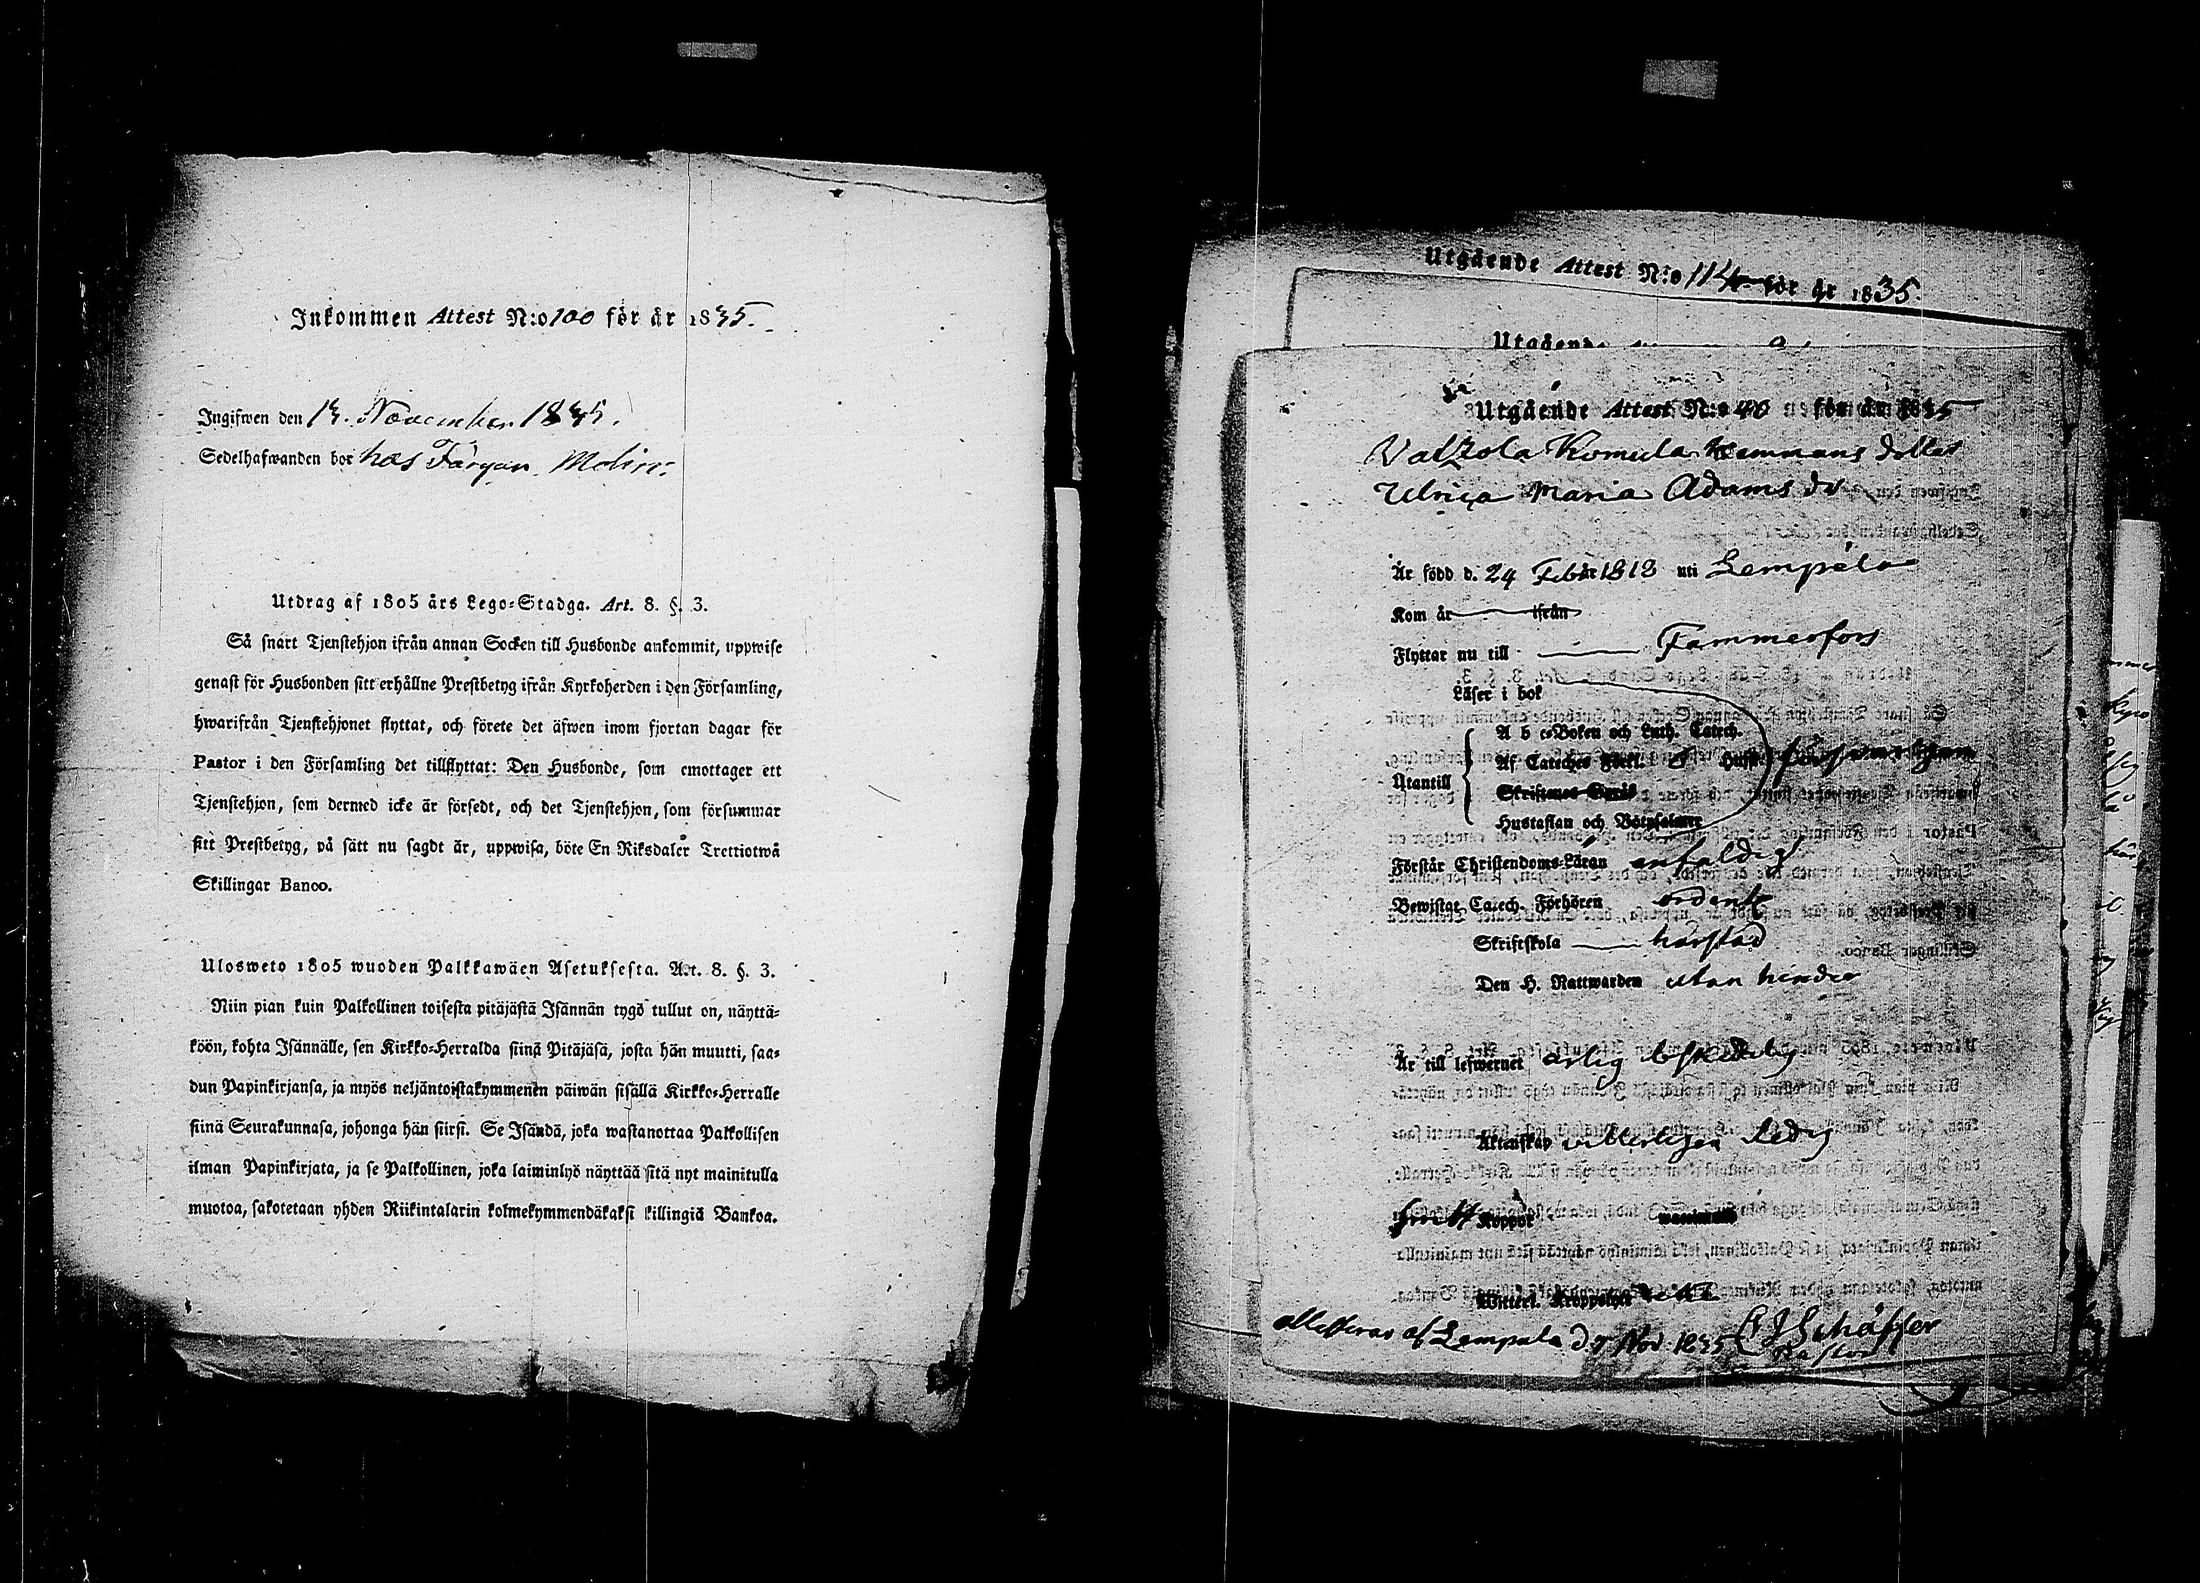 Inkommen Attest N:o 100 för år 1835.
Ingifwen den 13. November 1835.
Sedelhafwanden bor hos Färgar. Molin.
Utdrag af 1805 års Lego-Stadga. Art. 8. §. 3.
Så snart Tjenstehjon ifrån annan Socken till Husbonde ankommit, uppwise
genast för Husbonden sitt erhållne Prestbetyg ifrån Kyrkoherden i den Församling,
hwarifrån Tjenstehjonet flyttat, och förete det äfwen inom fjortan dagar för
Pastor i den Församling det tillflyttat: Den Husbonde, som emottager ett
Tjenstehjon, som dermed icke är försedt, och det Tjenstehjon, som försummar
sitt Prestbetyg, på sätt nu sagdt är, uppwisa, böte En Riksdaler Trettiotwå
Skillingar Banco.
Ulosweto 1805 wuoden Palkkawäen Asetuksesta. Art. 8. §. 3.
Niin pian kuin Palkollinen toisesta pitäjästä Isännän tygö tullut on, näyttä-
köön, kohta Isännälle, sen Kirkko-Herralda siinä Pitäjäsä, josta hän muutti, saa-
dun Papinkirjansa, ja myös neljäntoistakymmenen päiwän sisällä Kirkko-Herralle
siinä Seurakunnasa, johonga hän siirsi. Se Isändä, joka wastanottaa Palkollisen
ilman Papinkirjata, ja se Palkollinen, joka laiminlyö näyttää sitä nyt mainitulla
muotoa, sakotetaan yhden Riikintalarin kolmekymmendäkaksi killingiä Bankoa.
Utgående Attest N:o 114 för år 1835.
Utgående
Utgående Attest N:o 40 för år 1835
Komula Hemmans Dotter
Ulrica Maria Adams dr
Är född d. 24 Feb. år 1818 uti Lempäla
Kom år ifrån
Flyttar nu till Tammerfors
Läser i bok
A b c-Boken och Luth. Catech.
Utantill
Af Cateches Förkl. försvarligen
Skriftenes Språk
Hustaflan och Botpsalmer
Förstår Christendoms-Läran enfaldigt
Bewistat Catech. Förhören ordentl.
Skriftskola
Den H. Nattwarden utan hinder
Är till lefwernet ärlig beskedlig
Äktenskap witterligen ledig
haft Koppor
Witterl. Kroppslyte
Attesteras af Lempäla d. Nov. 1835 Schäffer
Pastor